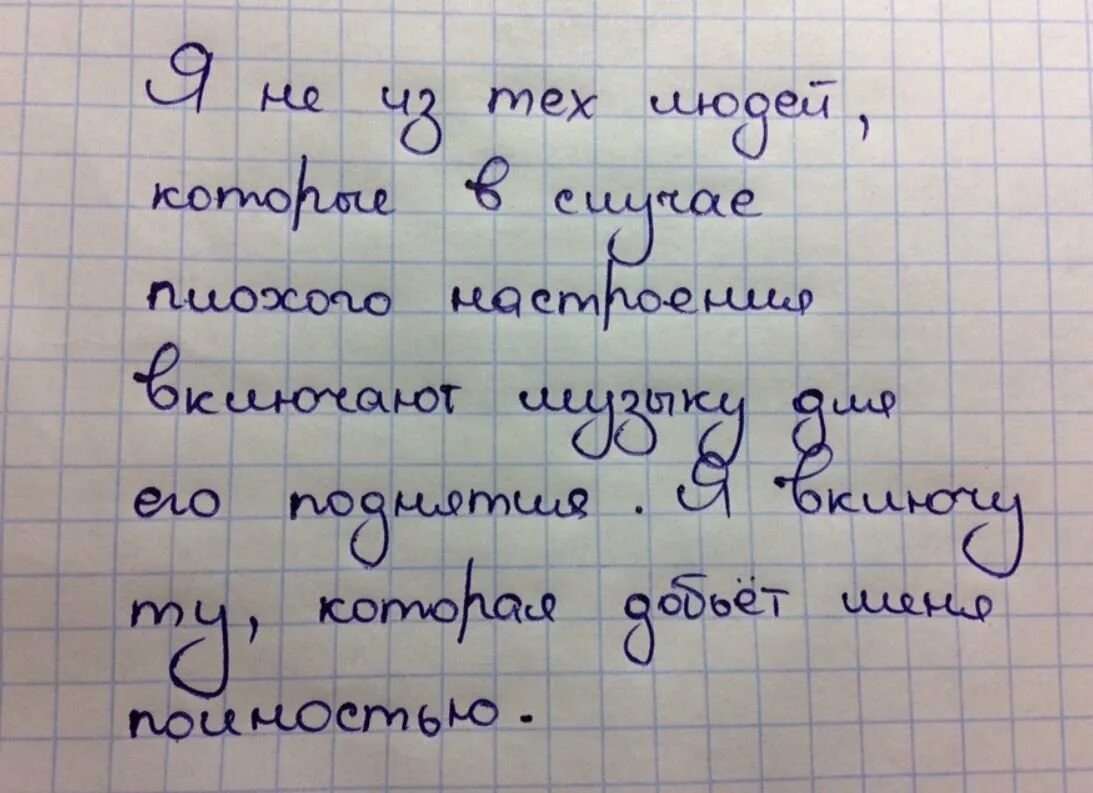 Я не из тех людей,
которые в случае
плохого настроения
включают музыку для
его поднятия. Я включу
ту, которая добьёт меня
полностью.